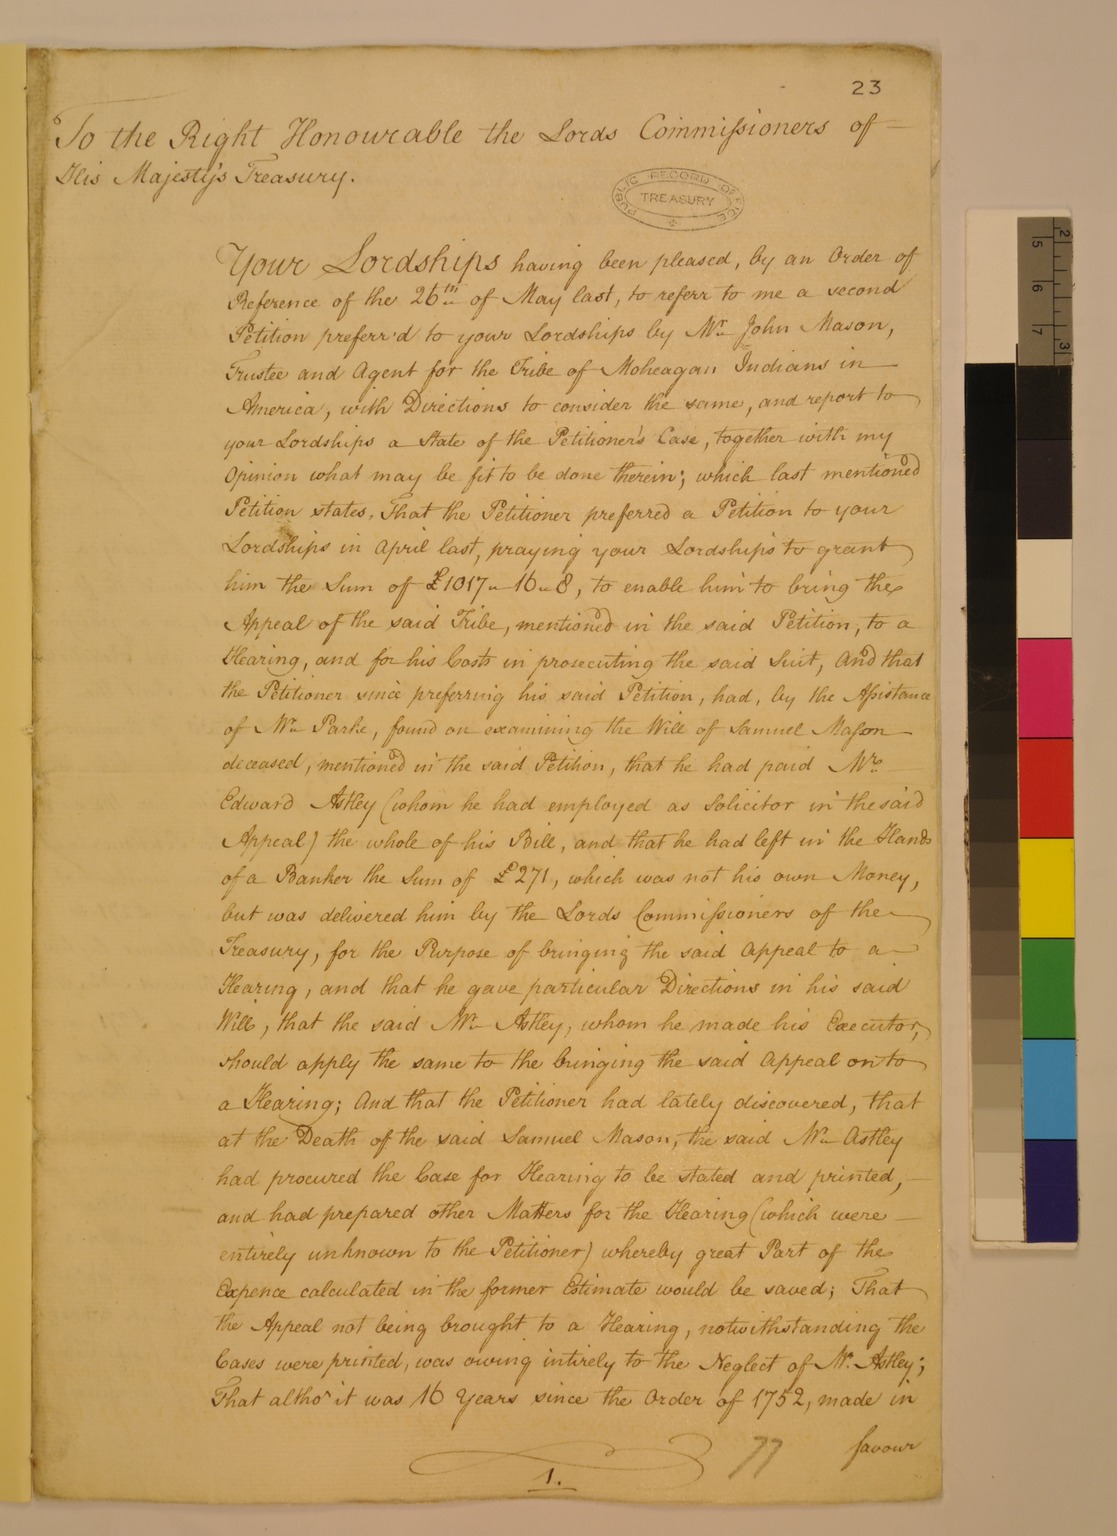 23
To the Right Honourable the Lords Commissioners of
His Majesty's Treasury.
PUBLIC RECORD OFFICE
TREASURY
Your Lordships having been pleased, by an Order of
Reference of the 26th of May last, to referr to me a second
Petition preferr'd to your Lordships by Mr. John Mason,
Trustee and Agent for the Tribe of Moheagan Indians in
America, with Directions to consider the same, and report to
your Lordships a State of the Petitioner's Case, together with my
Opinion what may be fit to be done therein; which last mentioned
Petition states, That the Petitioner preferred a Petition to your
Lordships in April last, praying your Lordships to grant
him the Sum of £1017 - 16 - 8, to enable him to bring the
Appeal of the said Tribe, mentioned in the said Petition, to a
Hearing, and for his Costs in prosecuting the said Suit, And that
the Petitioner since preferring his said Petition, had, by the Assistance
of Mr. Parke, found on examining the Will of Samuel Mason
deceased, mentioned in the said Petition, that he had paid Mr.
Edward Astley (whom he had employed as Solicitor in the said
Appeal) the whole of his Bill, and that he had left in the Hands
of a Banker the Sum of £271, which was not his own Money,
but was delivered him by the Lords Commissioners of the
Treasury, for the Purpose of bringing the said Appeal to a
Hearing, and that he gave particular Directions in his said
Will, that the said Mr. Astley, whom he made his Executor,
should apply the same to the bringing the said Appeal on to
a Hearing; And that the Petitioner had lately discovered, that
at the Death of the said Samuel Mason, the said Mr. Astley
had procured the Case for Hearing to be stated and printed,
and had prepared other Matters for the Hearing (which were
entirely unknown to the Petitioner) whereby great Part of the
Expence calculated in the former Estimate would be saved; That
the Appeal not being brought to a Hearing, notwithstanding the
Cases were printed, was owing intirely to the Neglect of Mr. Astley;
That altho' it was 16 Years since the Order of 1752, made in
favour
77
1.
5 6 7
2 3